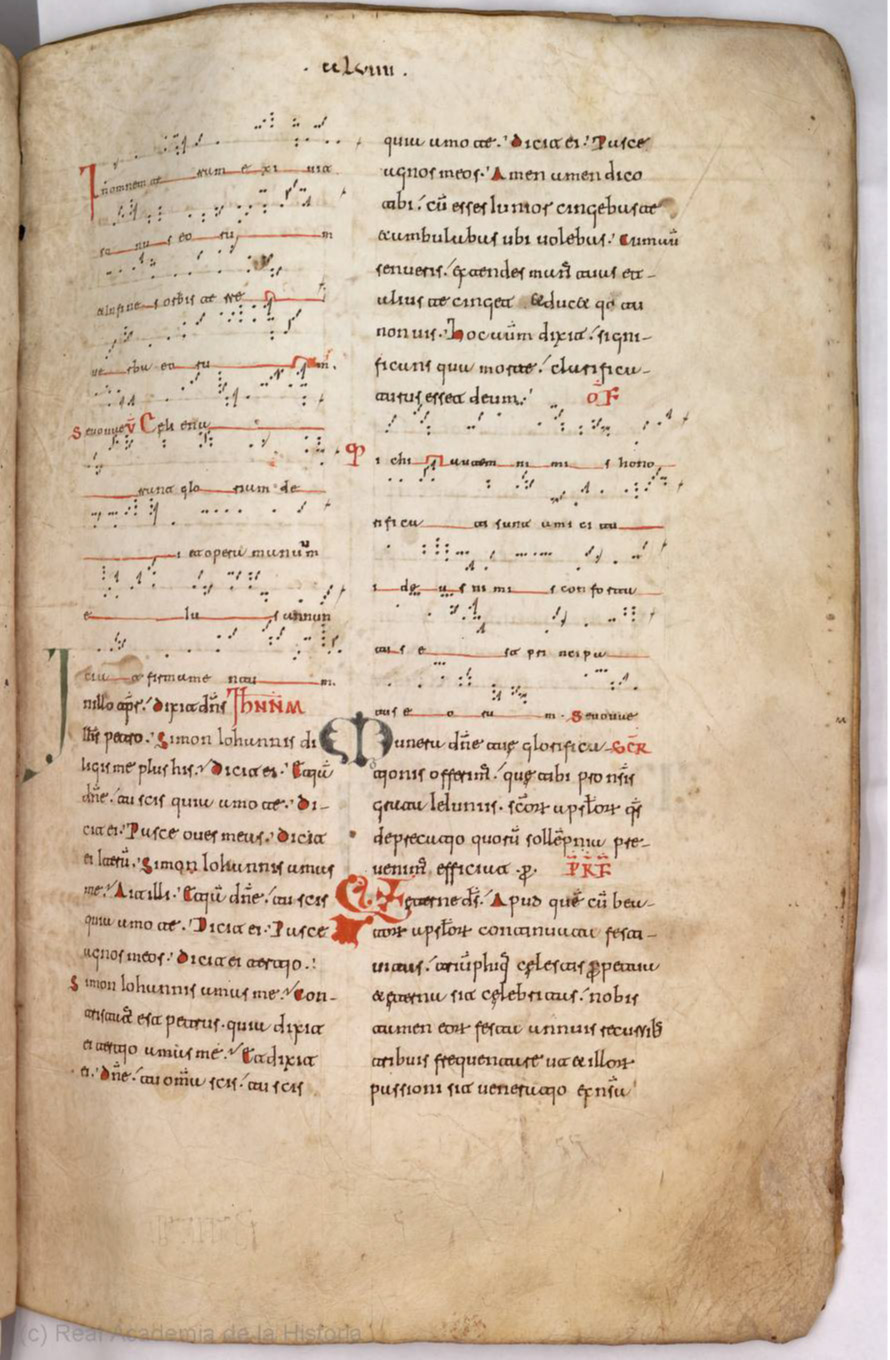 In omnem te rram e xi uit
so nu s eo ru m
et in fine s orbis te rre
ue rba eo ru m.
Seuouae V̄ Celi ena
rrant glo riam de
i et opera manuū
e iu s annun
tia t firmame ntu m.
In illo tp̄re. dixit dn̄s
petro. Simon Iohannis di
ligis me plus his. Dicit ei. Etiā
dn̄e. tu scis quia amo te. Di-
cit ei. Pasce oues meas. Dicit
ei iterū. Simon Iohannis amas
me. Ait illi. Etiā dn̄e. tu scis
quia amo te. Dicit ei. Pasce
agnos meos. Dicit ei tertio.
Simon Iohannis amas me. Con-
tristatꝰ est petrus. quia dixit
ei tertio amas me. Et dixit
ei. Dn̄e. tu om̄ia scis. tu scis
quia amo te. Dicit ei. Pasce
agnos meos. Amen amen dico
tibi. cū esses iunior cingebas te
et ambulabas ubi uolebas. Cum autē
senueris. extendes man̄ tuas et a-
lius te cinget et ducet qo tu
non uis. Hoc autē dixit. signi-
ficans qua morte. clarifica-
turus esset deum. OF̄
Michi autem ni mi s hono
rifica ti sunt amici tu
i de us ni mi s conforta
tus e st prin cipa
tus e o ru m. Seuouae
Munera dn̄e que glorifica SCR̄
tionis offerim̄. que tibi pro n̄sis
grata Ieiuniis. sc̄orum apl̄orum qs̄
deprecatio quorū sollēpnia pre-
uenim̄. efficiat. p̄. PRF̄
Eterne ds̄. Apud quē cū bea-
torum apl̄orum continuata festi-
uitas. triūphiq celestis ꝑpetua
et eterna sit celebritas. nobis
tamen eorum festa annuis recursib
tribuis frequentare ut et illorum
passioni sit ueneratio ex nr̄a